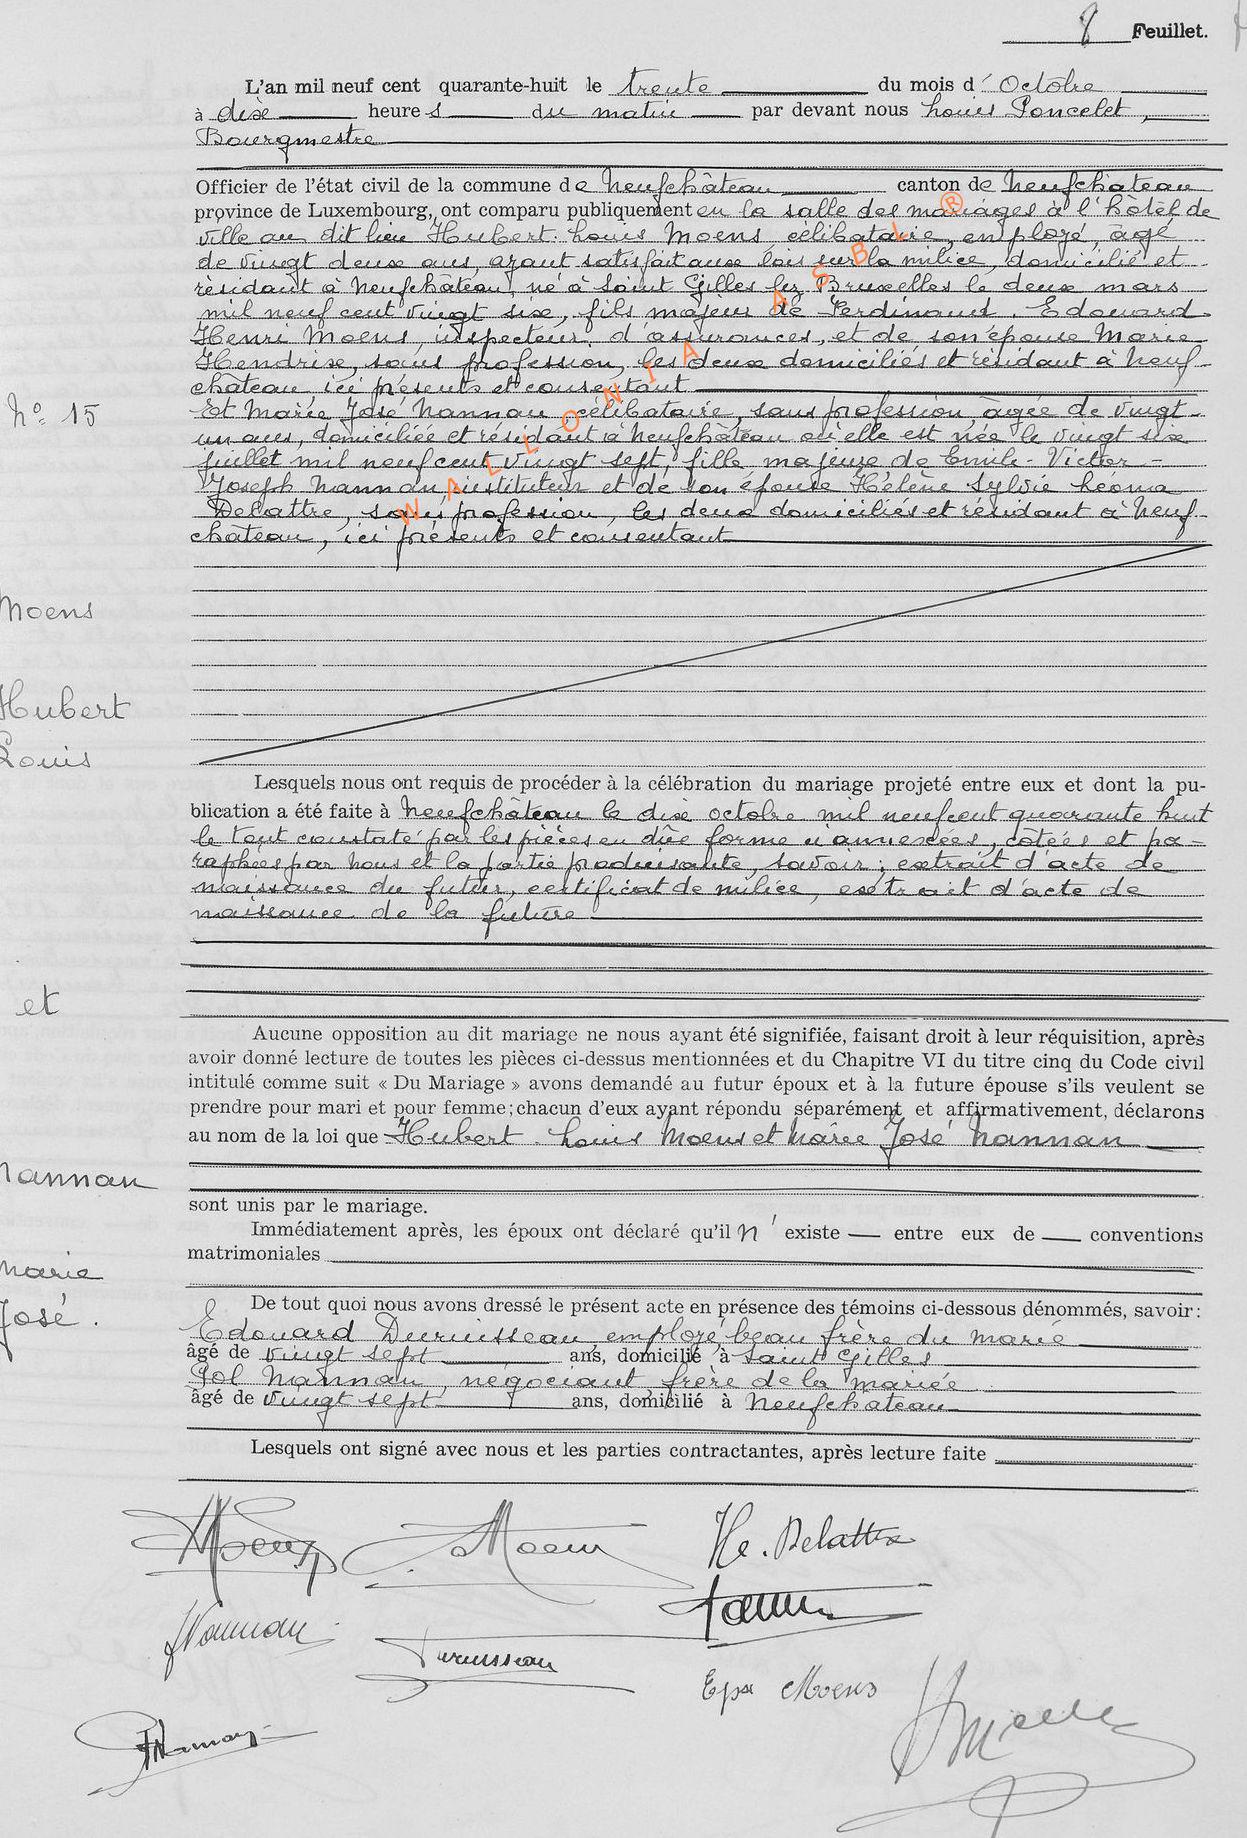 8 Feuillet.
L'an mil neuf cent quarante-huit le trente du mois d'Octobre
à dix heures du matin par devant nous Louis Poncelet,
Bourgmestre
Officier de l'état civil de la commune de Neufchâteau canton de Neufchâteau
province de Luxembourg, ont comparu publiquement en la salle des mariages à l'hôtel de
ville au dit lieu Hubert. Louis Moens célibataire, employé, âgé
de vingt deux ans, ayant satisfait aux lois sur la milice, domicilié et
résidant à Neufchâteau, né à Saint Gilles lez Bruxelles le deux mars
mil neuf cent vingt six, fils majeur de Ferdinand. Edouard
Henri Moens, inspecteur d'assurances, et de son épouse Marie
Hendrix, sans profession, les deux domiciliés et résidant à Neuf-
château, ici présents et consentant
Nº 15
Et Marie José Nannan célibataire, sans profession, âgée de vingt-
un ans, domiciliée et résidant à Neufchâteau où elle est née le vingt six
juillet mil neuf cent vingt sept, fille majeure de Emile-Victor-
Joseph Nannan, instituteur et de son épouse Hélène Sylvie Leona
Delattre, sans profession, les deux domiciliés et résidant à Neuf-
château, ici présents et consentant
WALLONIA ASBL ®
Moens
Hubert
Louis
Lesquels nous ont requis de procéder à la célébration du mariage projeté entre eux et dont la pu-
blication a été faite à Neufchâteau le dix octobre mil neuf cent quarante huit
le tout constaté par les pièces en dûe forme ci annexées, côtées et pa-
raphées par nous et la partie produisante, savoir; extrait d'acte de
naissance du futur, certificat de milice, extrait d'acte de
naissance de la future
et
Aucune opposition au dit mariage ne nous ayant été signifiée, faisant droit à leur réquisition, après
avoir donné lecture de toutes les pièces ci-dessus mentionnées et du Chapitre VI du titre cinq du Code civil
intitulé comme suit « Du Mariage » avons demandé au futur époux et à la future épouse s'ils veulent se
prendre pour mari et pour femme; chacun d'eux ayant répondu séparément et affirmativement, déclarons
au nom de la loi que Hubert. Louis Moens et Marie José Nannan
Nannan
sont unis par le mariage.
Immédiatement après, les époux ont déclaré qu'il n'existe — entre eux de — conventions
matrimoniales
Marie
José.
De tout quoi nous avons dressé le présent acte en présence des témoins ci-dessous dénommés, savoir:
Edouard Duruisseau, employé, beau frère du marié
âgé de vingt sept ans, domicilié à Saint Gilles
Pol Nannan, négociant, frère de la mariée
âgé de vingt sept ans, domicilié à Neufchâteau
Lesquels ont signé avec nous et les parties contractantes, après lecture faite
Moens Moens He. Delattre
Nannan Duruisseau
Epse Moens